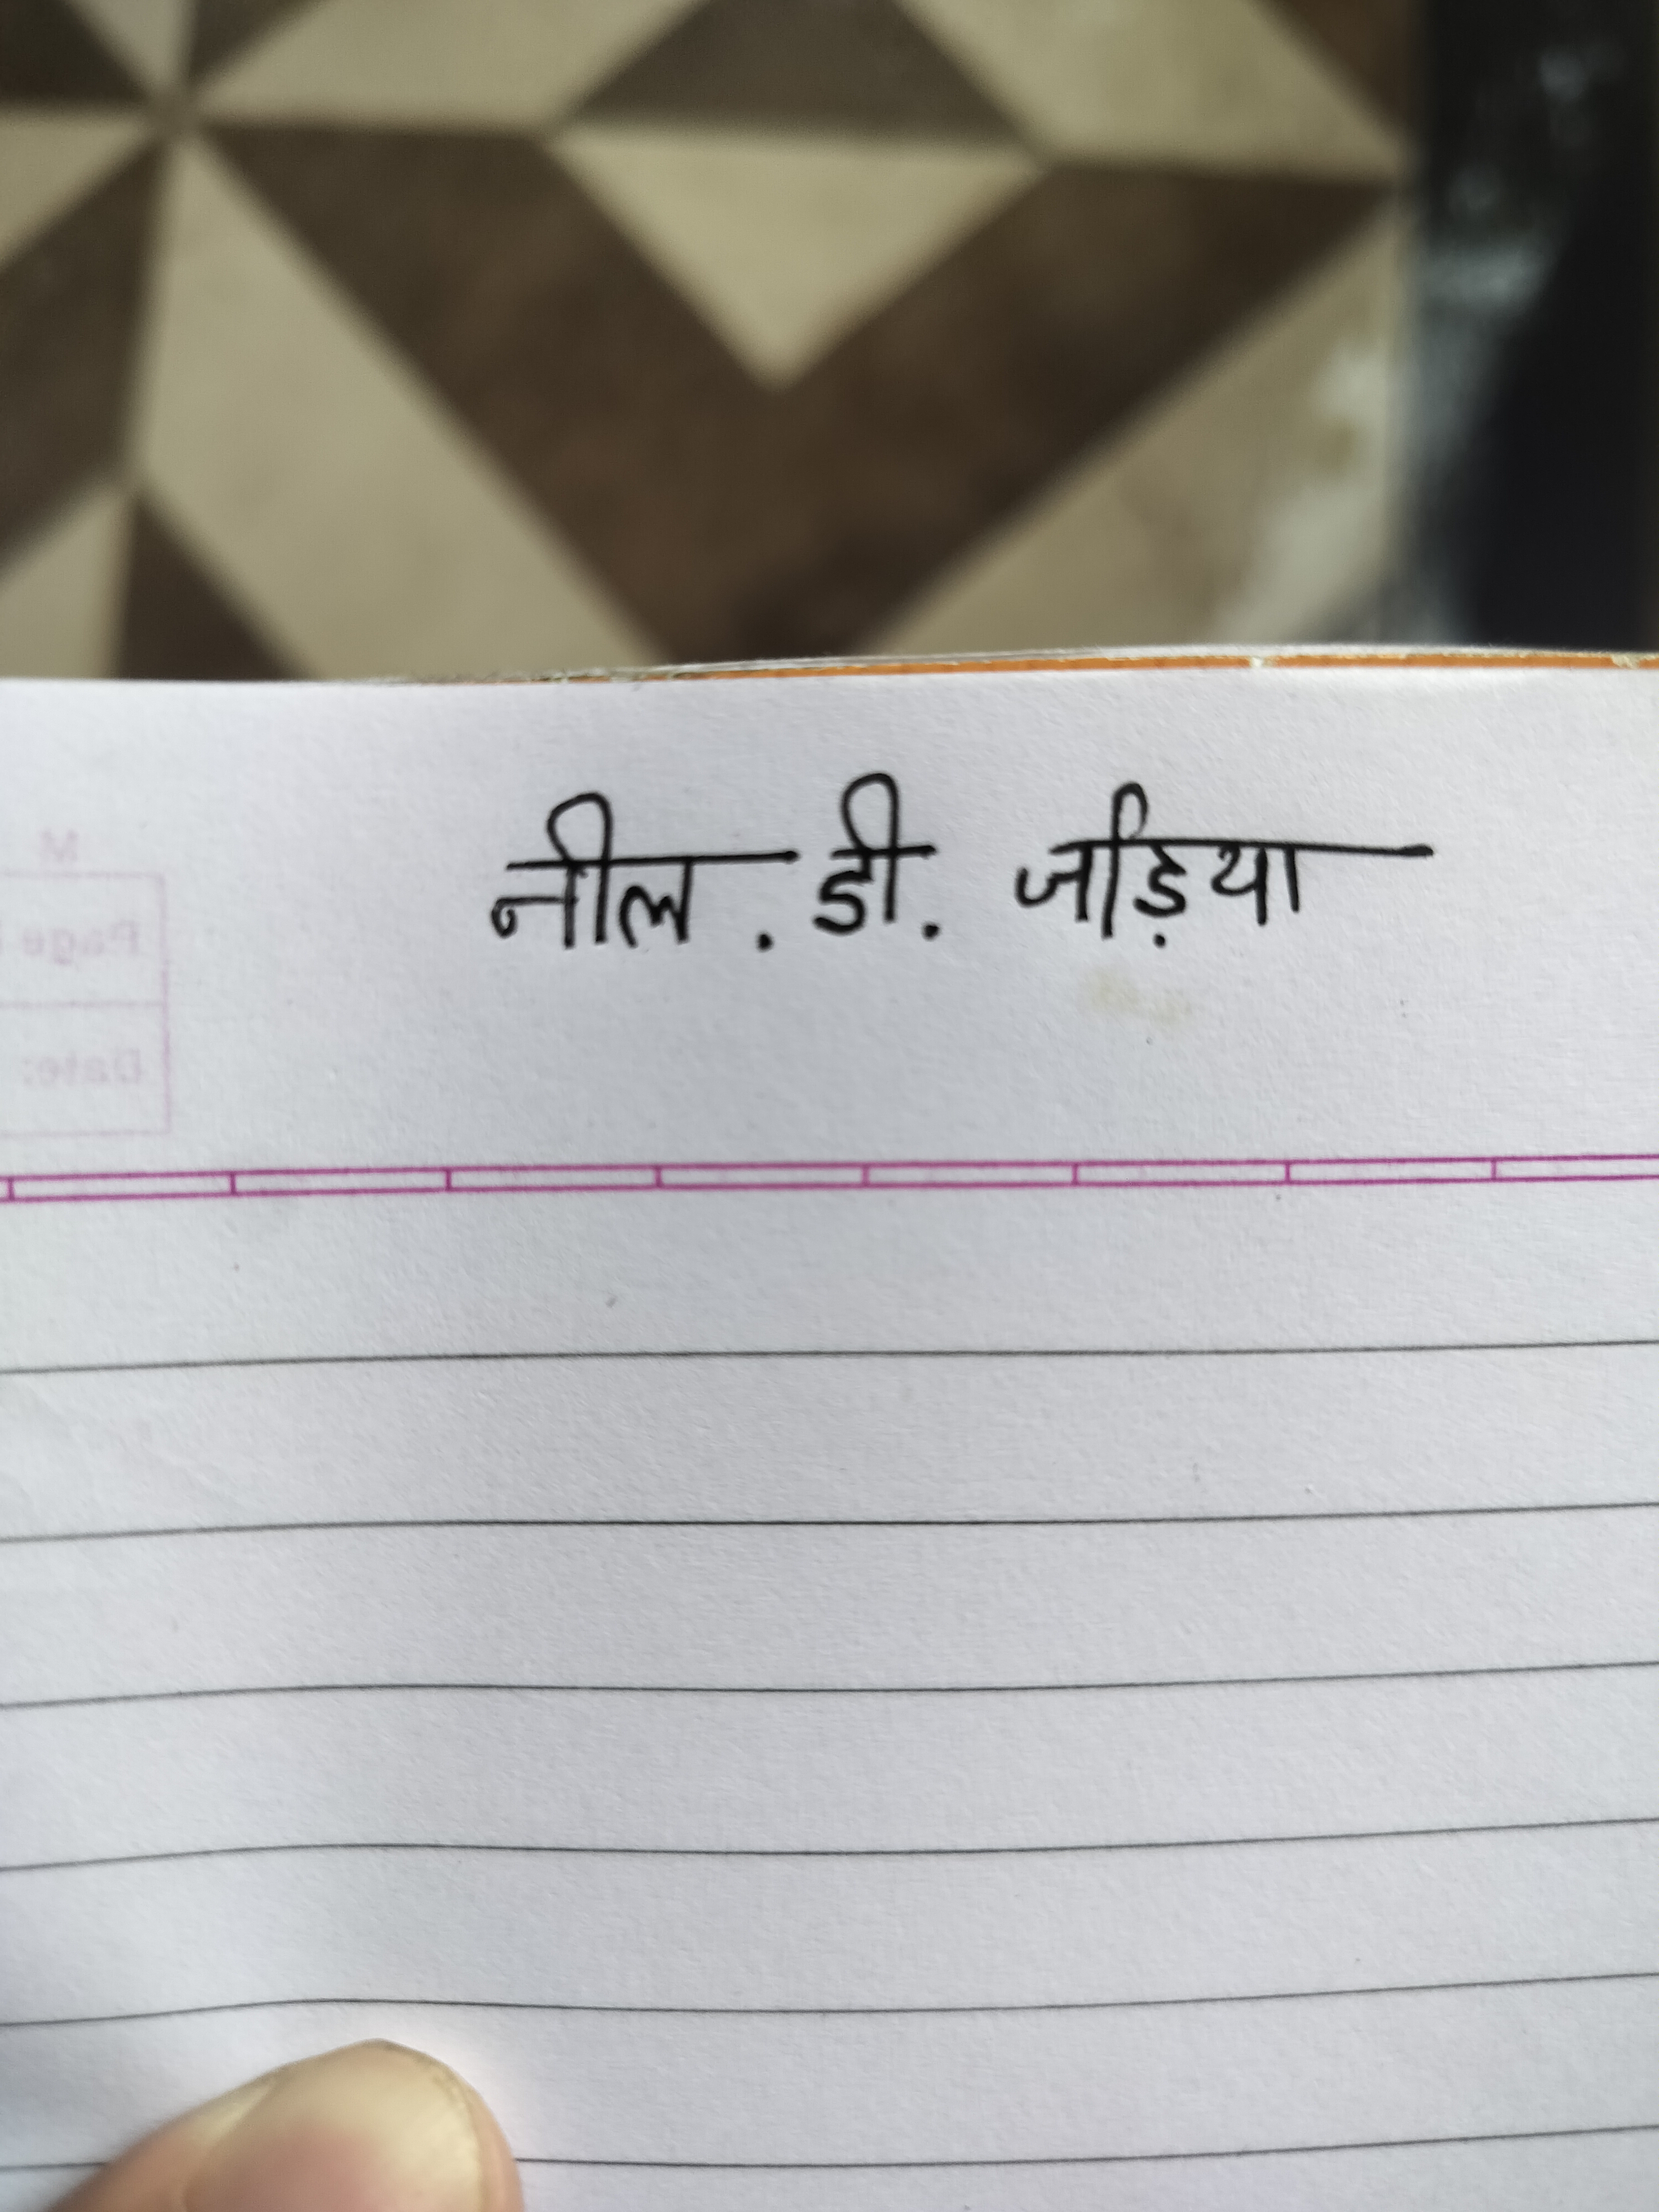 नील . डी. जड़िया
M
Page
Date: